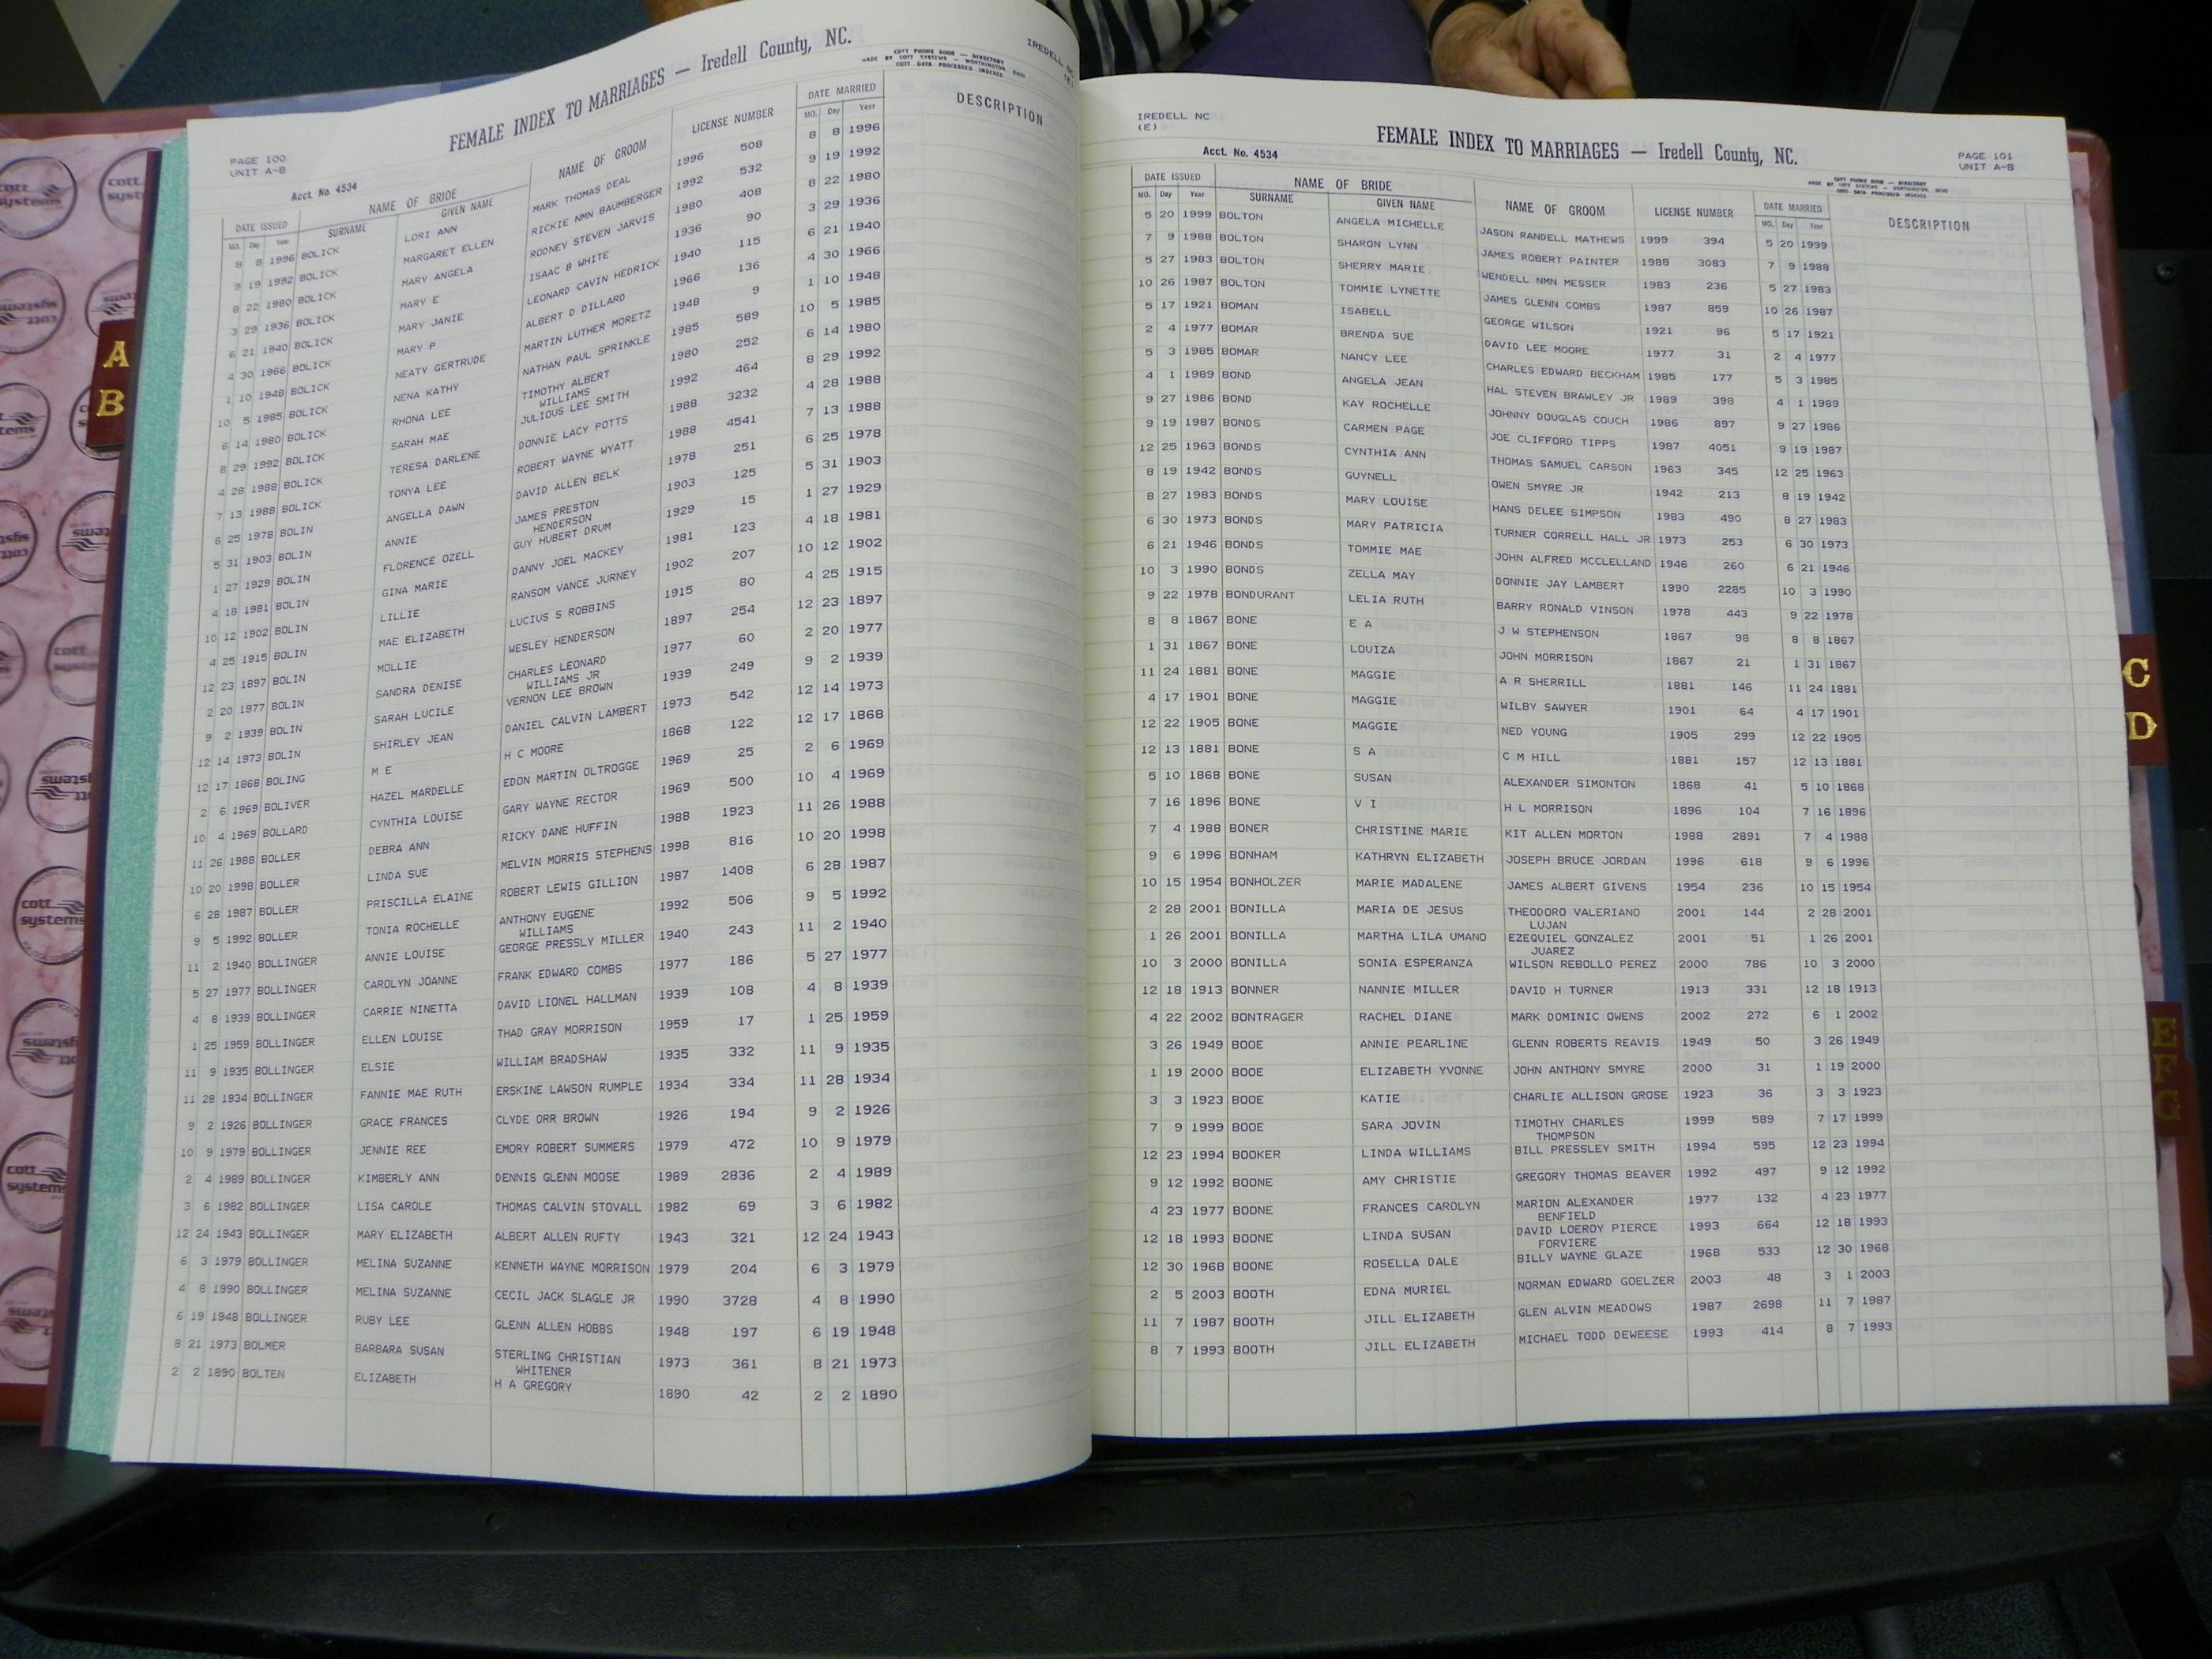 PAGE 100
UNIT A-B
Acct. No. 4534
FEMALE INDEX TO MARRIAGES — Iredell County, NC.
COTT PHONE BOOK — DIRECTORY
MADE BY COTT SYSTEMS — WORTHINGTON OHIO
COTT DATA PROCESSED INDEXES
IREDELL NC
(E)
DATE ISSUED NAME OF BRIDE NAME OF GROOM LICENSE NUMBER DATE MARRIED DESCRIPTION
MO. Day Year SURNAME GIVEN NAME MO. Day Year
8 8 1996 BOLICK LORI ANN MARK THOMAS DEAL 1996 508 8 8 1996
9 19 1992 BOLICK MARGARET ELLEN RICKIE NMN BAUMBERGER 1992 532 9 19 1992
8 22 1980 BOLICK MARY ANGELA RODNEY STEVEN JARVIS 1980 408 8 22 1980
3 29 1936 BOLICK MARY E ISAAC B WHITE 1936 90 3 29 1936
6 21 1940 BOLICK MARY JANIE LEONARD CAVIN HEDRICK 1940 115 6 21 1940
4 30 1966 BOLICK MARY P ALBERT D DILLARD 1966 136 4 30 1966
1 10 1948 BOLICK NEATY GERTRUDE MARTIN LUTHER MORETZ 1948 9 1 10 1948
10 5 1985 BOLICK NENA KATHY NATHAN PAUL SPRINKLE 1985 589 10 5 1985
6 14 1980 BOLICK RHONA LEE TIMOTHY ALBERT 1980 252 6 14 1980
WILLIAMS
8 29 1992 BOLICK SARAH MAE JULIOUS LEE SMITH 1992 464 8 29 1992
4 28 1988 BOLICK TERESA DARLENE DONNIE LACY POTTS 1988 3232 4 28 1988
7 13 1988 BOLICK TONYA LEE ROBERT WAYNE WYATT 1988 4541 7 13 1988
6 25 1978 BOLIN ANGELLA DAWN DAVID ALLEN BELK 1978 251 6 25 1978
5 31 1903 BOLIN ANNIE JAMES PRESTON 1903 125 5 31 1903
HENDERSON
1 27 1929 BOLIN FLORENCE OZELL GUY HUBERT DRUM 1929 15 1 27 1929
4 18 1981 BOLIN GINA MARIE DANNY JOEL MACKEY 1981 123 4 18 1981
10 12 1902 BOLIN LILLIE RANSOM VANCE JURNEY 1902 207 10 12 1902
4 25 1915 BOLIN MAE ELIZABETH LUCIUS S ROBBINS 1915 80 4 25 1915
12 23 1897 BOLIN MOLLIE WESLEY HENDERSON 1897 254 12 23 1897
2 20 1977 BOLIN SANDRA DENISE CHARLES LEONARD 1977 60 2 20 1977
WILLIAMS JR
9 2 1939 BOLIN SARAH LUCILE VERNON LEE BROWN 1939 249 9 2 1939
12 14 1973 BOLIN SHIRLEY JEAN DANIEL CALVIN LAMBERT 1973 542 12 14 1973
12 17 1868 BOLING M E H C MOORE 1868 122 12 17 1868
2 6 1969 BOLIVER HAZEL MARDELLE EDON MARTIN OLTROGGE 1969 25 2 6 1969
10 4 1969 BOLLARD CYNTHIA LOUISE GARY WAYNE RECTOR 1969 500 10 4 1969
11 26 1988 BOLLER DEBRA ANN RICKY DANE HUFFIN 1988 1923 11 26 1988
10 20 1998 BOLLER LINDA SUE MELVIN MORRIS STEPHENS 1998 816 10 20 1998
6 28 1987 BOLLER PRISCILLA ELAINE ROBERT LEWIS GILLION 1987 1408 6 28 1987
9 5 1992 BOLLER TONIA ROCHELLE ANTHONY EUGENE 1992 506 9 5 1992
WILLIAMS
11 2 1940 BOLLINGER ANNIE LOUISE GEORGE PRESSLY MILLER 1940 243 11 2 1940
5 27 1977 BOLLINGER CAROLYN JOANNE FRANK EDWARD COMBS 1977 186 5 27 1977
4 8 1939 BOLLINGER CARRIE NINETTA DAVID LIONEL HALLMAN 1939 108 4 8 1939
1 25 1959 BOLLINGER ELLEN LOUISE THAD GRAY MORRISON 1959 17 1 25 1959
11 9 1935 BOLLINGER ELSIE WILLIAM BRADSHAW 1935 332 11 9 1935
11 28 1934 BOLLINGER FANNIE MAE RUTH ERSKINE LAWSON RUMPLE 1934 334 11 28 1934
9 2 1926 BOLLINGER GRACE FRANCES CLYDE ORR BROWN 1926 194 9 2 1926
10 9 1979 BOLLINGER JENNIE REE EMORY ROBERT SUMMERS 1979 472 10 9 1979
2 4 1989 BOLLINGER KIMBERLY ANN DENNIS GLENN MOOSE 1989 2836 2 4 1989
3 6 1982 BOLLINGER LISA CAROLE THOMAS CALVIN STOVALL 1982 69 3 6 1982
12 24 1943 BOLLINGER MARY ELIZABETH ALBERT ALLEN RUFTY 1943 321 12 24 1943
6 3 1979 BOLLINGER MELINA SUZANNE KENNETH WAYNE MORRISON 1979 204 6 3 1979
4 8 1990 BOLLINGER MELINA SUZANNE CECIL JACK SLAGLE JR 1990 3728 4 8 1990
6 19 1948 BOLLINGER RUBY LEE GLENN ALLEN HOBBS 1948 197 6 19 1948
8 21 1973 BOLMER BARBARA SUSAN STERLING CHRISTIAN 1973 361 8 21 1973
WHITENER
2 2 1890 BOLTEN ELIZABETH H A GREGORY 1890 42 2 2 1890
IREDELL NC
(E)
Acct. No. 4534
FEMALE INDEX TO MARRIAGES — Iredell County, NC.
PAGE 101
UNIT A-B
COTT PHONE BOOK — DIRECTORY
MADE BY COTT SYSTEMS — WORTHINGTON OHIO
COTT DATA PROCESSED INDEXES
DATE ISSUED NAME OF BRIDE NAME OF GROOM LICENSE NUMBER DATE MARRIED DESCRIPTION
MO. Day Year SURNAME GIVEN NAME MO. Day Year
5 20 1999 BOLTON ANGELA MICHELLE JASON RANDELL MATHEWS 1999 394 5 20 1999
7 9 1988 BOLTON SHARON LYNN JAMES ROBERT PAINTER 1988 3083 7 9 1988
5 27 1983 BOLTON SHERRY MARIE WENDELL NMN MESSER 1983 236 5 27 1983
10 26 1987 BOLTON TOMMIE LYNETTE JAMES GLENN COMBS 1987 859 10 26 1987
5 17 1921 BOMAN ISABELL GEORGE WILSON 1921 96 5 17 1921
2 4 1977 BOMAR BRENDA SUE DAVID LEE MOORE 1977 31 2 4 1977
5 3 1985 BOMAR NANCY LEE CHARLES EDWARD BECKHAM 1985 177 5 3 1985
4 1 1989 BOND ANGELA JEAN HAL STEVEN BRAWLEY JR 1989 398 4 1 1989
9 27 1986 BOND KAY ROCHELLE JOHNNY DOUGLAS COUCH 1986 897 9 27 1986
9 19 1987 BONDS CARMEN PAGE JOE CLIFFORD TIPPS 1987 4051 9 19 1987
12 25 1963 BONDS CYNTHIA ANN THOMAS SAMUEL CARSON 1963 345 12 25 1963
8 19 1942 BONDS GUYNELL OWEN SMYRE JR 1942 213 8 19 1942
8 27 1983 BONDS MARY LOUISE HANS DELEE SIMPSON 1983 490 8 27 1983
6 30 1973 BONDS MARY PATRICIA TURNER CORRELL HALL JR 1973 253 6 30 1973
6 21 1946 BONDS TOMMIE MAE JOHN ALFRED MCCLELLAND 1946 260 6 21 1946
10 3 1990 BONDS ZELLA MAY DONNIE JAY LAMBERT 1990 2285 10 3 1990
9 22 1978 BONDURANT LELIA RUTH BARRY RONALD VINSON 1978 443 9 22 1978
8 8 1867 BONE E A J W STEPHENSON 1867 98 8 8 1867
1 31 1867 BONE LOUIZA JOHN MORRISON 1867 21 1 31 1867
11 24 1881 BONE MAGGIE A R SHERRILL 1881 146 11 24 1881
4 17 1901 BONE MAGGIE WILBY SAWYER 1901 64 4 17 1901
12 22 1905 BONE MAGGIE NED YOUNG 1905 299 12 22 1905
12 13 1881 BONE S A C M HILL 1881 157 12 13 1881
5 10 1868 BONE SUSAN ALEXANDER SIMONTON 1868 41 5 10 1868
7 16 1896 BONE V I H L MORRISON 1896 104 7 16 1896
7 4 1988 BONER CHRISTINE MARIE KIT ALLEN MORTON 1988 2891 7 4 1988
9 6 1996 BONHAM KATHRYN ELIZABETH JOSEPH BRUCE JORDAN 1996 618 9 6 1996
10 15 1954 BONHOLZER MARIE MADALENE JAMES ALBERT GIVENS 1954 236 10 15 1954
2 28 2001 BONILLA MARIA DE JESUS THEODORO VALERIANO 2001 144 2 28 2001
LUJAN
1 26 2001 BONILLA MARTHA LILA UMANO EZEQUIEL GONZALEZ 2001 51 1 26 2001
JUAREZ
10 3 2000 BONILLA SONIA ESPERANZA WILSON REBOLLO PEREZ 2000 786 10 3 2000
12 18 1913 BONNER NANNIE MILLER DAVID H TURNER 1913 331 12 18 1913
4 22 2002 BONTRAGER RACHEL DIANE MARK DOMINIC OWENS 2002 272 6 1 2002
3 26 1949 BOOE ANNIE PEARLINE GLENN ROBERTS REAVIS 1949 50 3 26 1949
1 19 2000 BOOE ELIZABETH YVONNE JOHN ANTHONY SMYRE 2000 31 1 19 2000
3 3 1923 BOOE KATIE CHARLIE ALLISON GROSE 1923 36 3 3 1923
7 9 1999 BOOE SARA JOVIN TIMOTHY CHARLES 1999 589 7 17 1999
THOMPSON
12 23 1994 BOOKER LINDA WILLIAMS BILL PRESSLEY SMITH 1994 595 12 23 1994
9 12 1992 BOONE AMY CHRISTIE GREGORY THOMAS BEAVER 1992 497 9 12 1992
4 23 1977 BOONE FRANCES CAROLYN MARION ALEXANDER 1977 132 4 23 1977
BENFIELD
12 18 1993 BOONE LINDA SUSAN DAVID LOEROY PIERCE 1993 664 12 18 1993
FORVIERE
12 30 1968 BOONE ROSELLA DALE BILLY WAYNE GLAZE 1968 533 12 30 1968
2 5 2003 BOOTH EDNA MURIEL NORMAN EDWARD GOELZER 2003 48 3 1 2003
11 7 1987 BOOTH JILL ELIZABETH GLEN ALVIN MEADOWS 1987 2698 11 7 1987
8 7 1993 BOOTH JILL ELIZABETH MICHAEL TODD DEWEESE 1993 414 8 7 1993
A
B
C
D
E
F
G
cott
systems